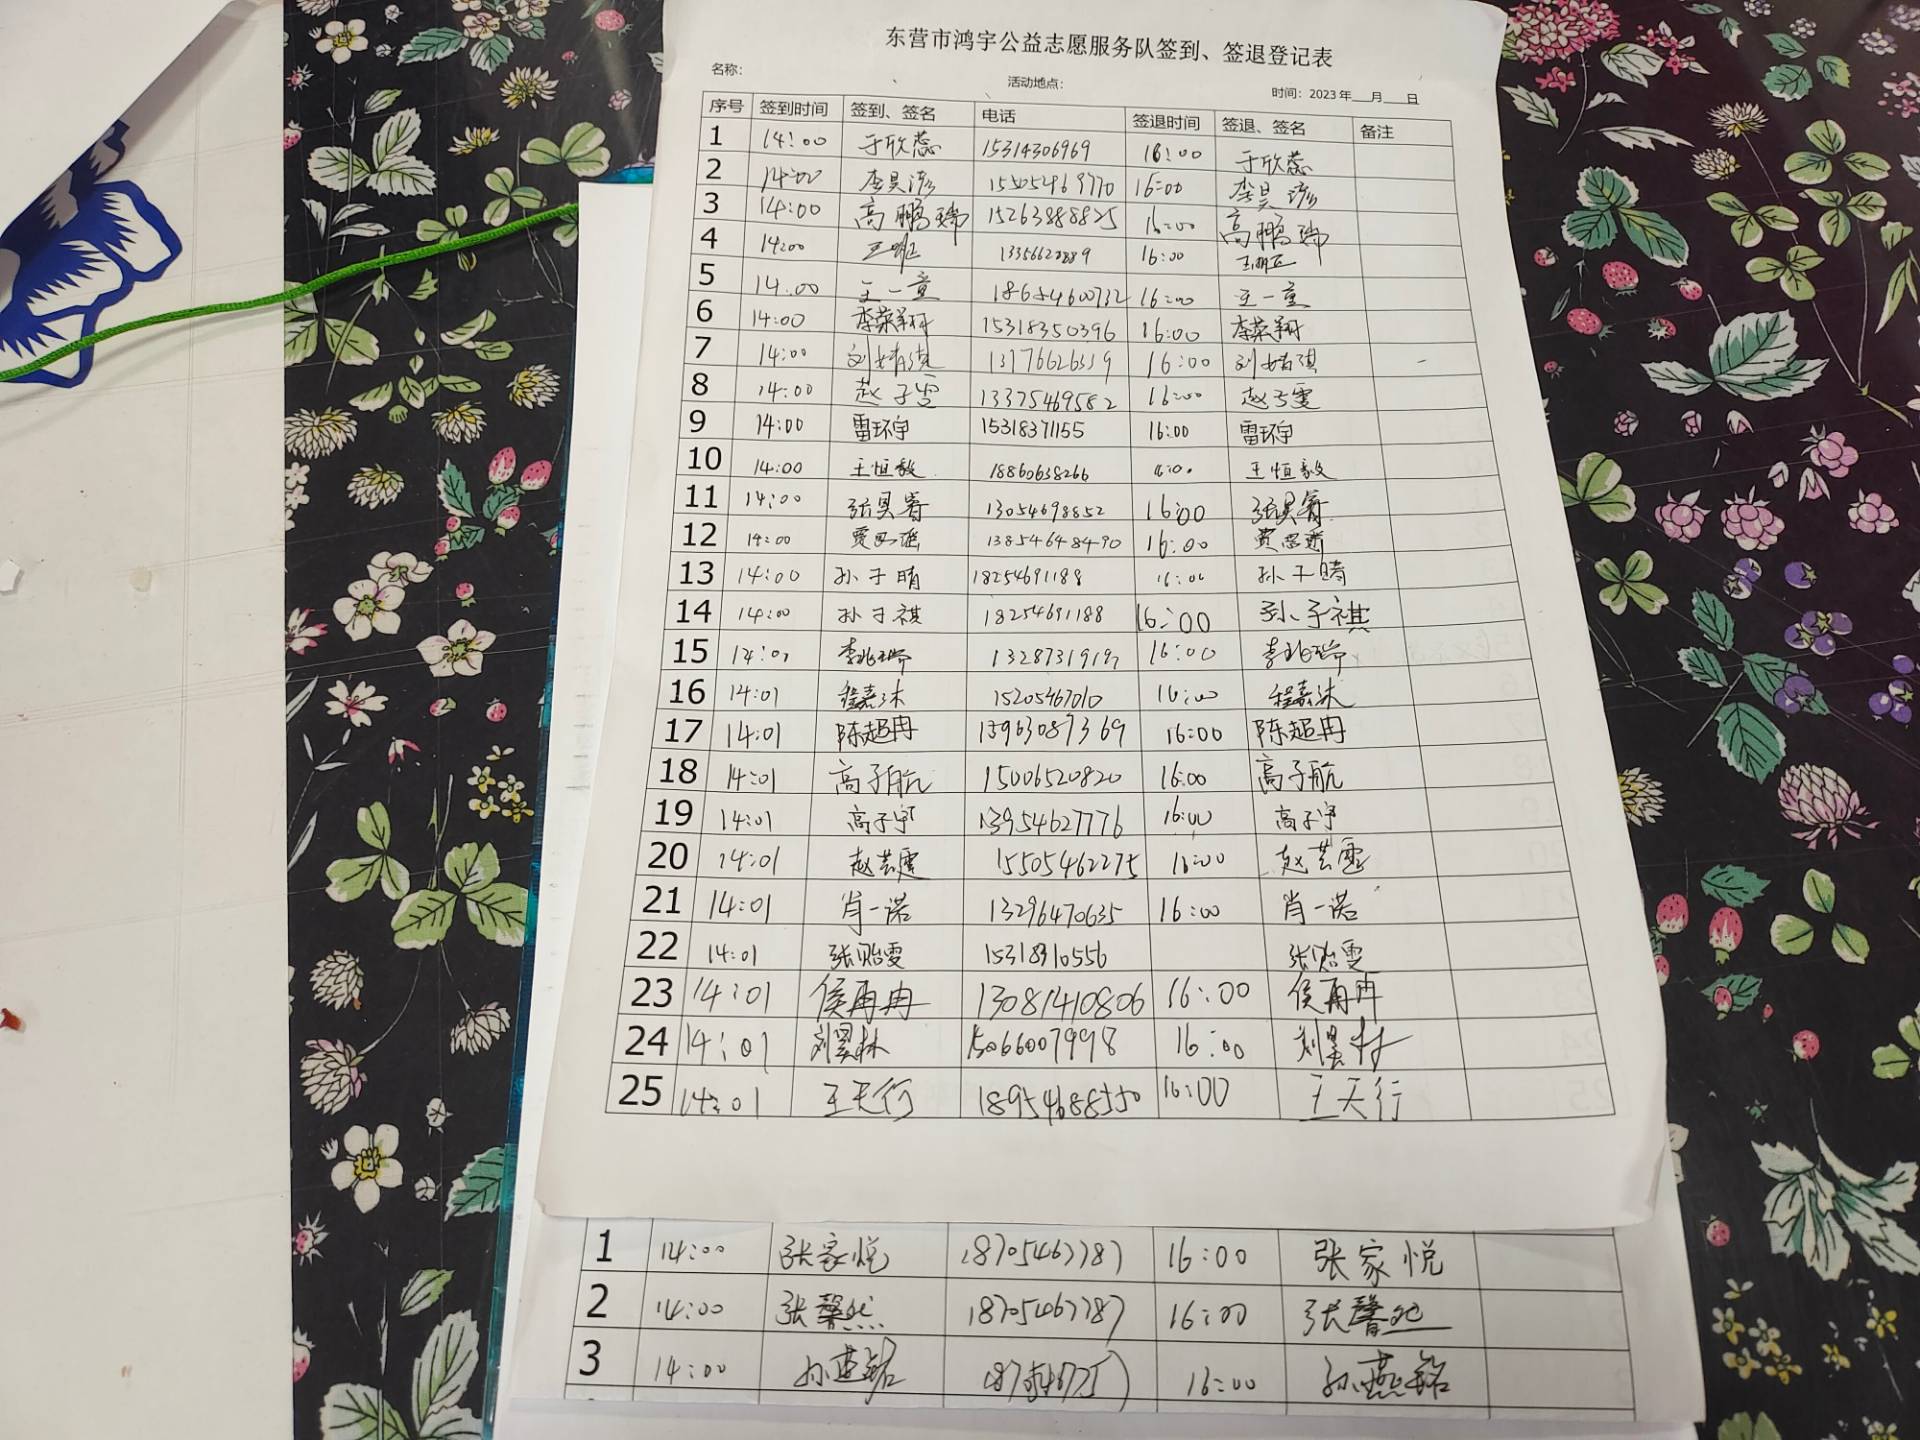 东营市鸿宇公益志愿服务队签到、签退登记表
名称: 活动地点: 时间: 2023年___月___日
序号 签到时间 签到、签名 电话 签退时间 签退、签名 备注
1 14:00 于欣蕊 15314306969 16:00 于欣蕊
2 14:00 李昊 15505469770 16:00 李昊
3 14:00 高鹏瑞 15263888825 16:00 高鹏瑞
4 14:00 16:00
5 14:00 王一童 18654600732 16:00 王一童
6 14:00 李荣翔 15318350396 16:00 李荣翔
7 14:00 刘婧淇 16:00 刘婧琪
8 14:00 赵子雯 13375469582 16:00 赵子雯
9 14:00 雷环宇 15318371155 16:00 雷环宇
10 14:00 王恒毅 18860638266 王恒毅
11 14:00 张昊睿 13054698852 16:00 张昊睿
12 14:00 贾思瑶 13854648490 16:00
13 14:00 孙子晴 18254691188 16:00 孙子晴
14 14:00 孙子祺 18254691188 16:00 孙子祺
15 李兆瑞 16:00 李兆瑞
16 14:01 程嘉沐 15205467010 16:00 程嘉沐
17 14:01 陈超冉 13963087369 16:00 陈超冉
18 14:01 高子航 15006520820 16:00 高子航
19 14:01 高子宇 13954627776 16:00 高子宇
20 14:01 赵芸霆 15505462275 16:00 赵芸霆
21 14:01 肖一诺 13296470635 16:00 肖一诺
22 14:01 张贻雯 15318910556 张贻雯
23 14:01 侯再冉 13081410806 16:00 侯再冉
24 14:01 刘昊林 15066007998 16:00 刘昊林
25 14:01 王天行 18954688550 16:00 王天行
1 14:00 张家悦 18705467787 16:00 张家悦
2 14:00 张馨然 18705467787 16:00 张馨然
3 14:00 孙燕铭 16:00 孙燕铭